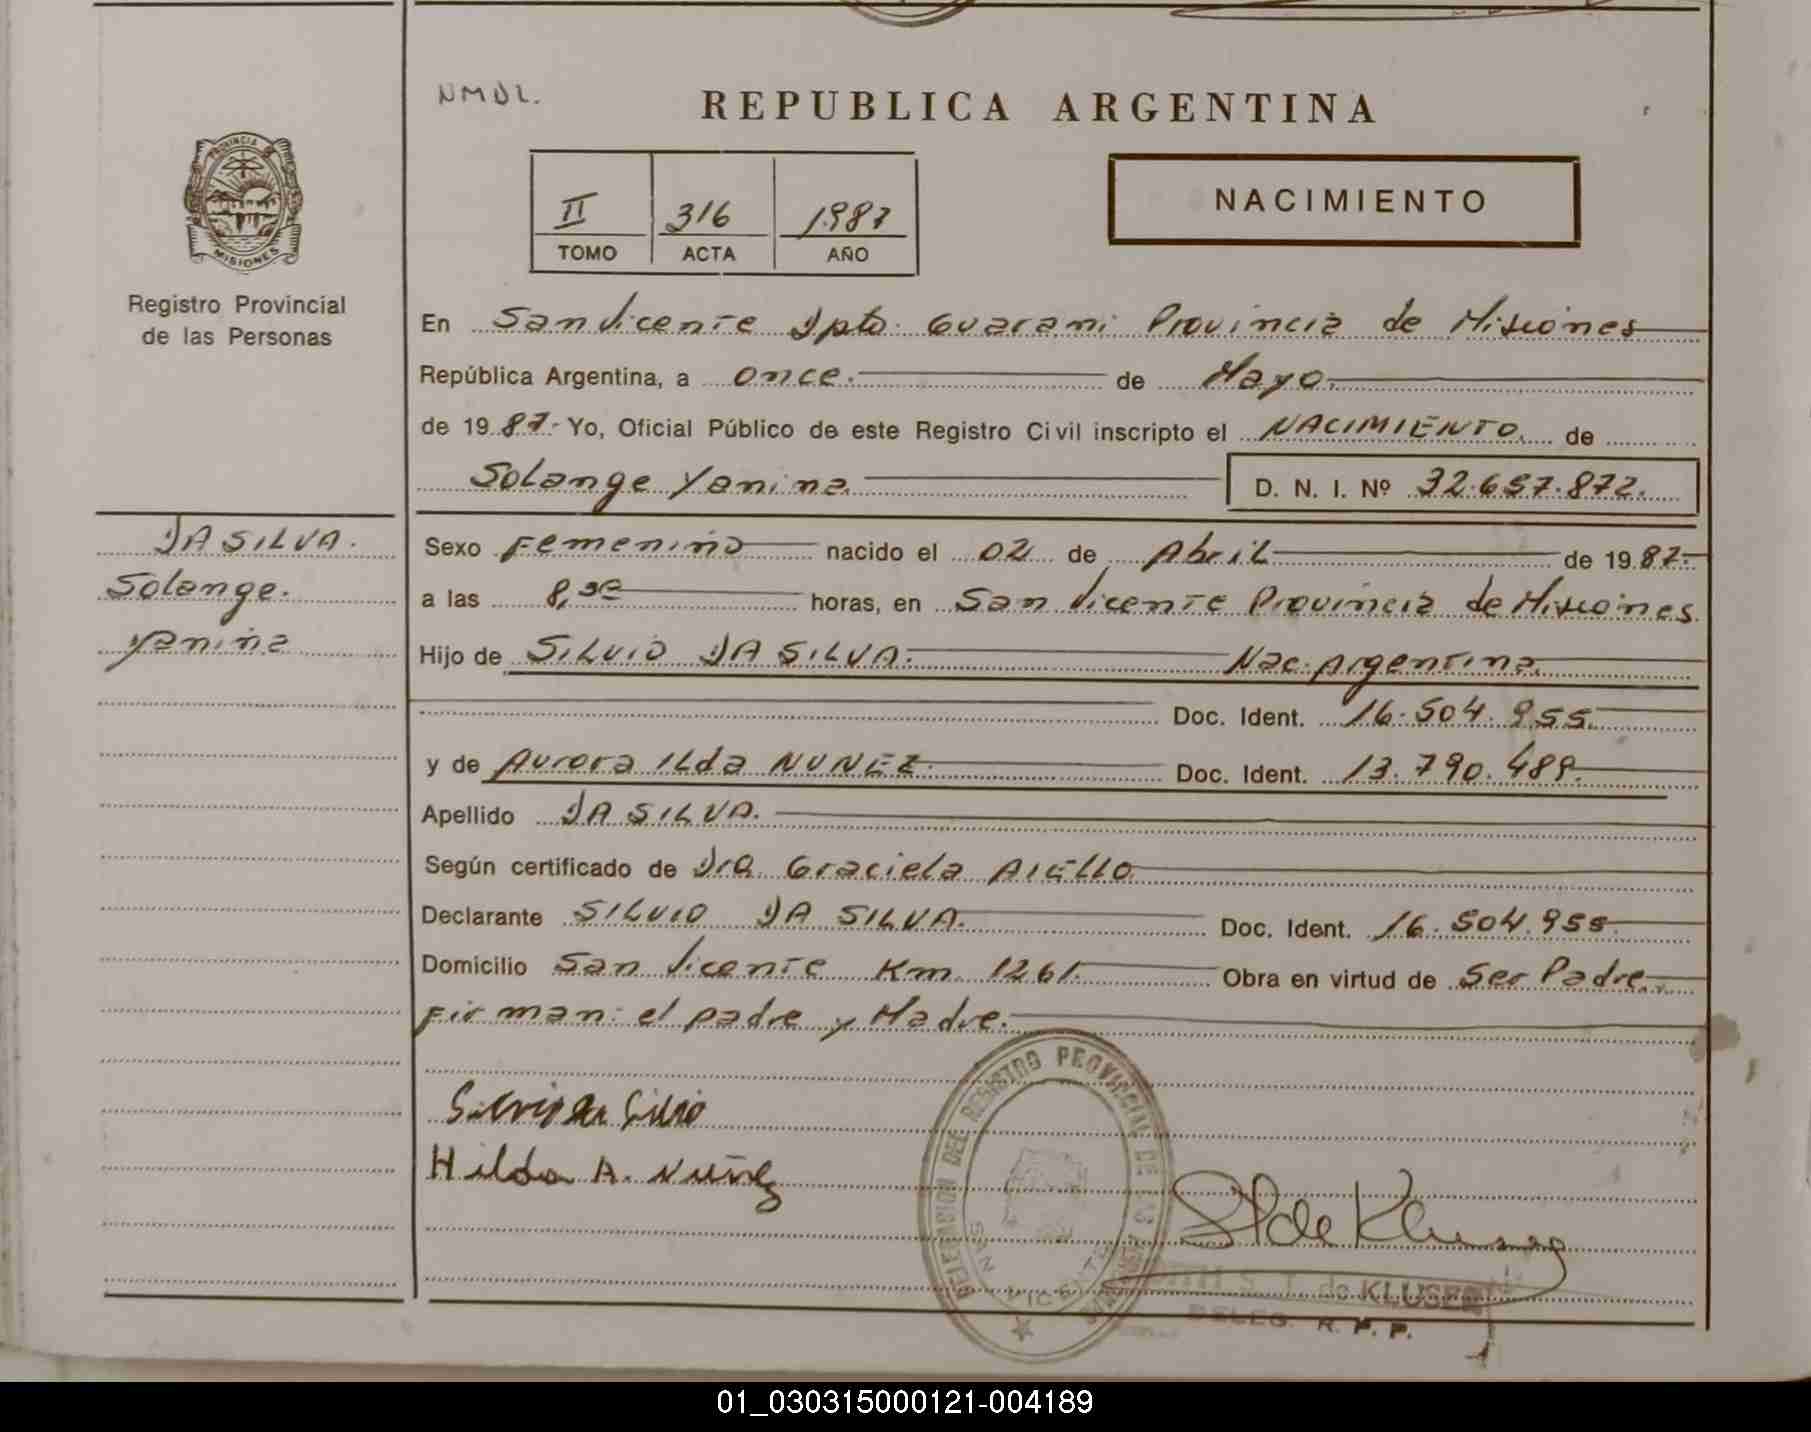 NMDL.
REPUBLICA ARGENTINA
PROVINCIA
MISIONES
Registro Provincial
de las Personas
II 316 1987
TOMO ACTA AÑO
NACIMIENTO
En San Vicente Dpto. Guarani Provincia de Misiones
República Argentina, a once. de Mayo.
de 1987- Yo, Oficial Público de este Registro Civil inscripto el NACIMIENTO. de
Solange Yanina D. N. I. Nº 32.657.872.
DA SILVA.
Solange.
Yanina
Sexo Femenino nacido el 02 de Abril de 1987-
a las 8,30 horas, en San Vicente Provincia de Misiones
Hijo de SILVIO DA SILVA. Nac. Argentina.
Doc. Ident. 16.504.955.
y de Aurora Ilda NUNEZ. Doc. Ident. 13.790.489.
Apellido DA SILVA.
Según certificado de Dra. Graciela AIELLO
Declarante SILVIO DA SILVA. Doc. Ident. 16.504.955
Domicilio San Vicente Km. 1261. Obra en virtud de Ser Padre.
Firman: el padre y Madre.
Hilda A. Nuñez
DELEGACION DEL REGISTRO PROVINCIAL DE LAS PERSONAS
SAN VICENTE
S. T. de KLUSER
DELEG. R. P. P.
01_030315000121-004189